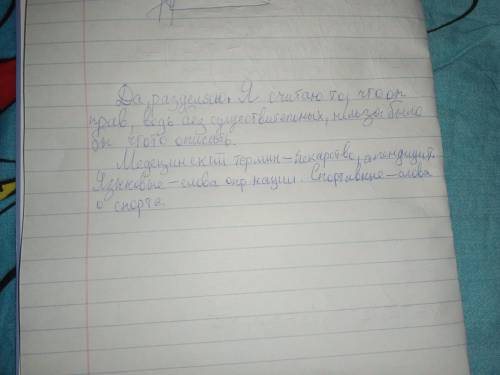 Да, разделяю. Я считаю то, что он
прав, ведь без существительных, нельзя было
бы чтото описать.
Медецинский термин – лекарство, апендицит.
Языковые – слова опр. нации. Спортивные – слова
о спорте.